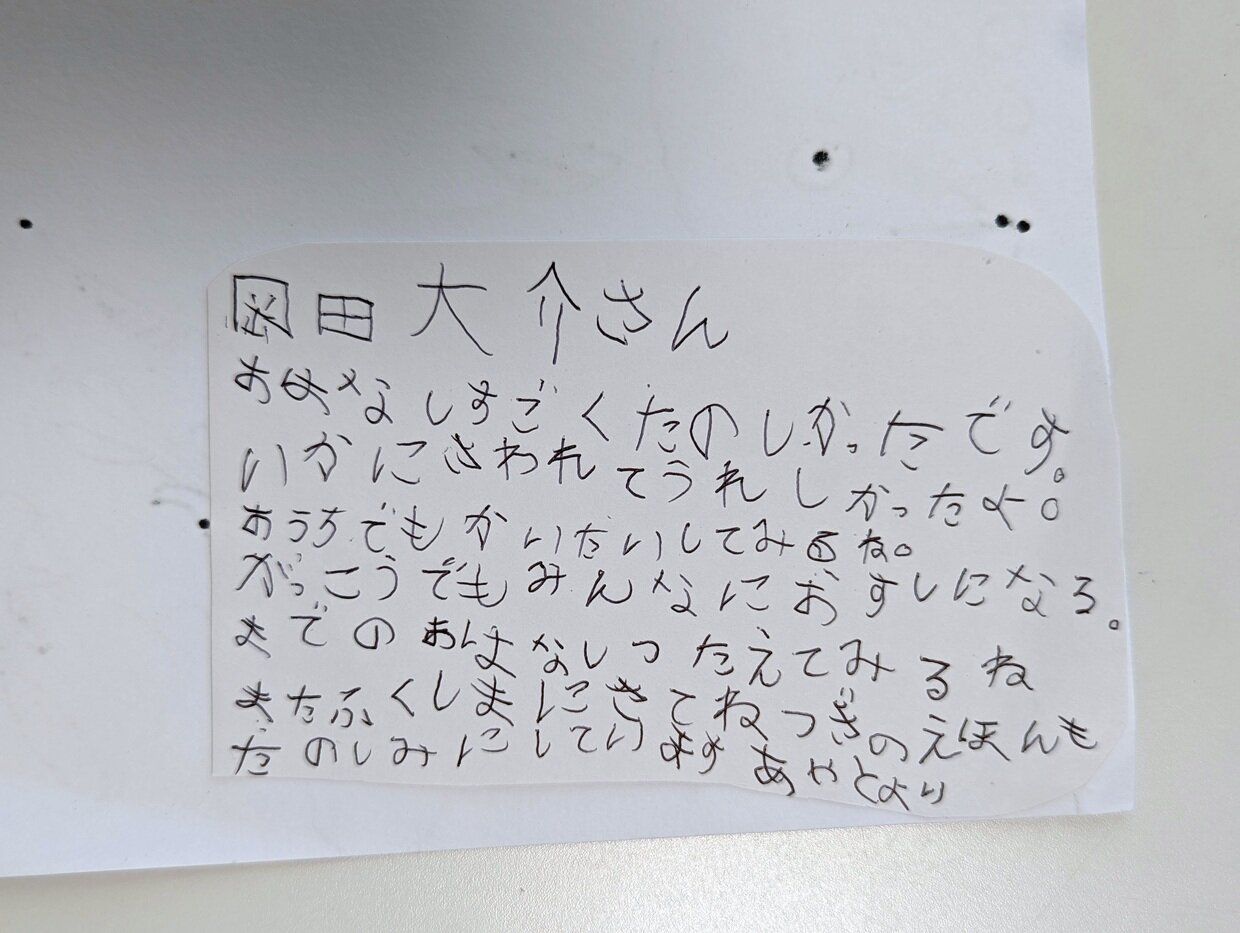 岡田大介さん
おはなしすごくたのしかったです。
いかにさわれてうれしかったよ。
おうちでもかいたいしてみるね。
がっこうでもみんなにおすしになる。
までのおはなしつたえてみるね
またふくしまにきてねつぎのえほんも
だのしみにしています あやとより